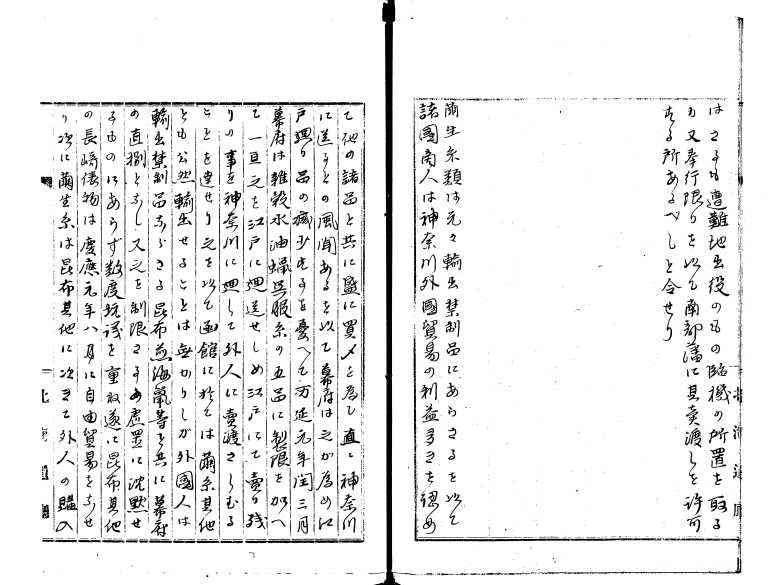 はさるも遭難地出役のもの臨機の所置を取る
か又奉行限りを以て南部藩に其売渡しを許可
する所あるべしと令せり
繭生糸類は元々輸出禁制品にあらさるを以て
諸国商人は神奈川外国貿易の利益多きを認め
て他の諸品と共に盛に買〆を為して直に神奈川
に送るとの風聞あるを以て幕府は之か為め江
戸廻り品の減少せるを憂へて万延元年閏三月
幕府は雑穀水油蝋呉服糸の五品に製限を加へ
て一旦之を江戸に廻送せしめ江戸にて売り残
りの事を神奈川に廻して外人に売渡さしむる
ことを達せり之を以て函館に於ては繭糸其他
とも公然輸出せることは無かりしが外国人は
輸出禁制品ならざる昆布煎海鼠等と共に幕府
の直捌となし又之を制限するを虚置に沈黙せ
るものにあらず数度抗議を重ね遂に昆布其他
の長崎俵物は慶応元年八月に自由貿易をなせ
り次に繭生糸は昆布其他に次きて外人の購入
北海道庁